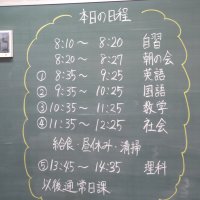 本日の日程
8:10～ 8:20 自習
8:20～ 8:27 朝の会
① 8:35～ 9:25 英語
② 9:35～10:25 国語
③ 10:35～11:25 数学
④ 11:35～12:25 社会
給食・昼休み・清掃
⑤ 13:45～14:35 理科
以後通常日課